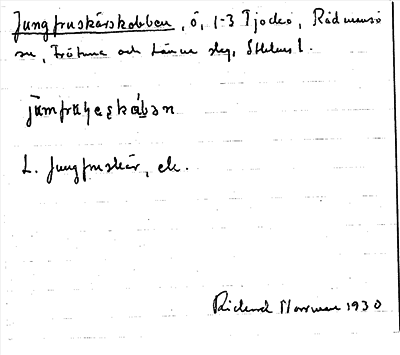 Jungfruskärskobben, ö, 1-3 Tjockö, Rådmansö
sn, Frötuna och Länna slg, Sthlms l.
jɯ̄mfrɯ̨ȩskáb̲ən
L. Jungfruskär, ek.
Rickard Norrman 1930